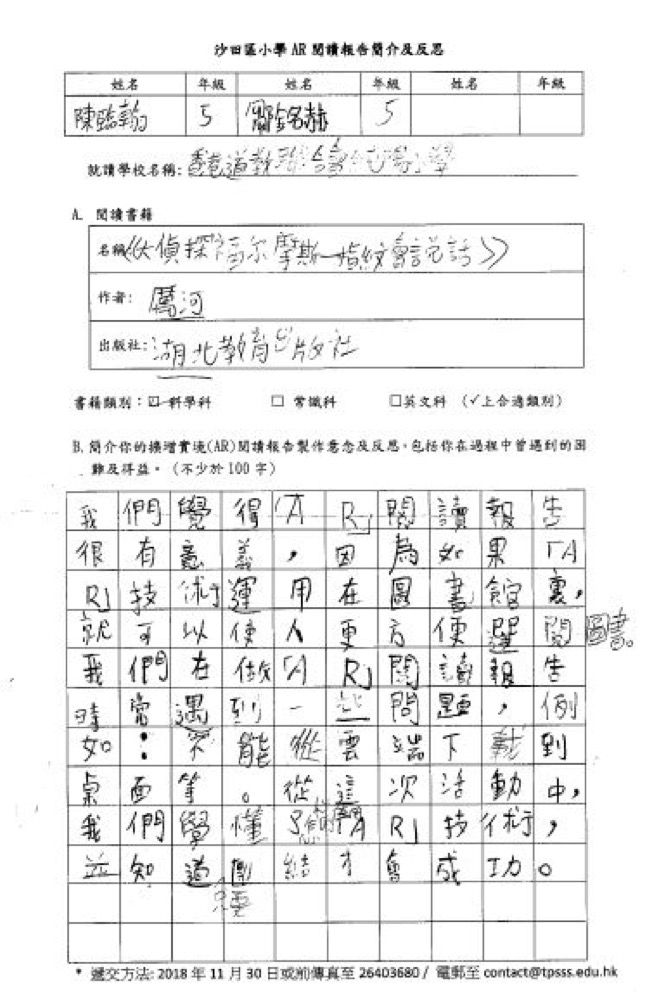 沙田區小學 AR 閱讀報告簡介及反思
姓名 年級 姓名 年級 姓名 年級
陳臨翰 5 鄺銘赫 5
就讀學校名稱: 香港道教聯合會
A. 閱讀書籍
名稱《大偵探福尔摩斯—指紋會說話》
作者: 厲河
出版社: 湖北教育出版社
書籍類別:☑ 科學科 □ 常識科 □英文科 (✓上合適類別)
B. 簡介你的擴增實境(AR)閱讀報告製作意念及反思,包括你在過程中曾遇到的困
難及得益。(不少於 100 字)
我們覺得「AR」閱讀報告
很有意義,因為如果「A
R」技術運用在圖書館裏,
就可以使人更方便選閱圖書。
我們在做「AR」閱讀報告
時常遇到一些問題,例
如:不能從雲端下載到
桌面等。從這次活動中,
我們學懂怎樣用AR技術,
並知道只要團結才會成功。
* 遞交方法: 2018 年 11 月 30 日或前傳真至 26403680 / 電郵至 contact@tpsss.edu.hk